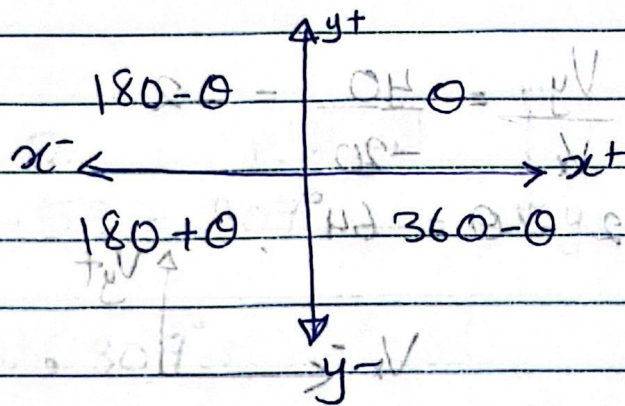 y+
180-θ θ
x- x+
180+θ 360-θ
y-